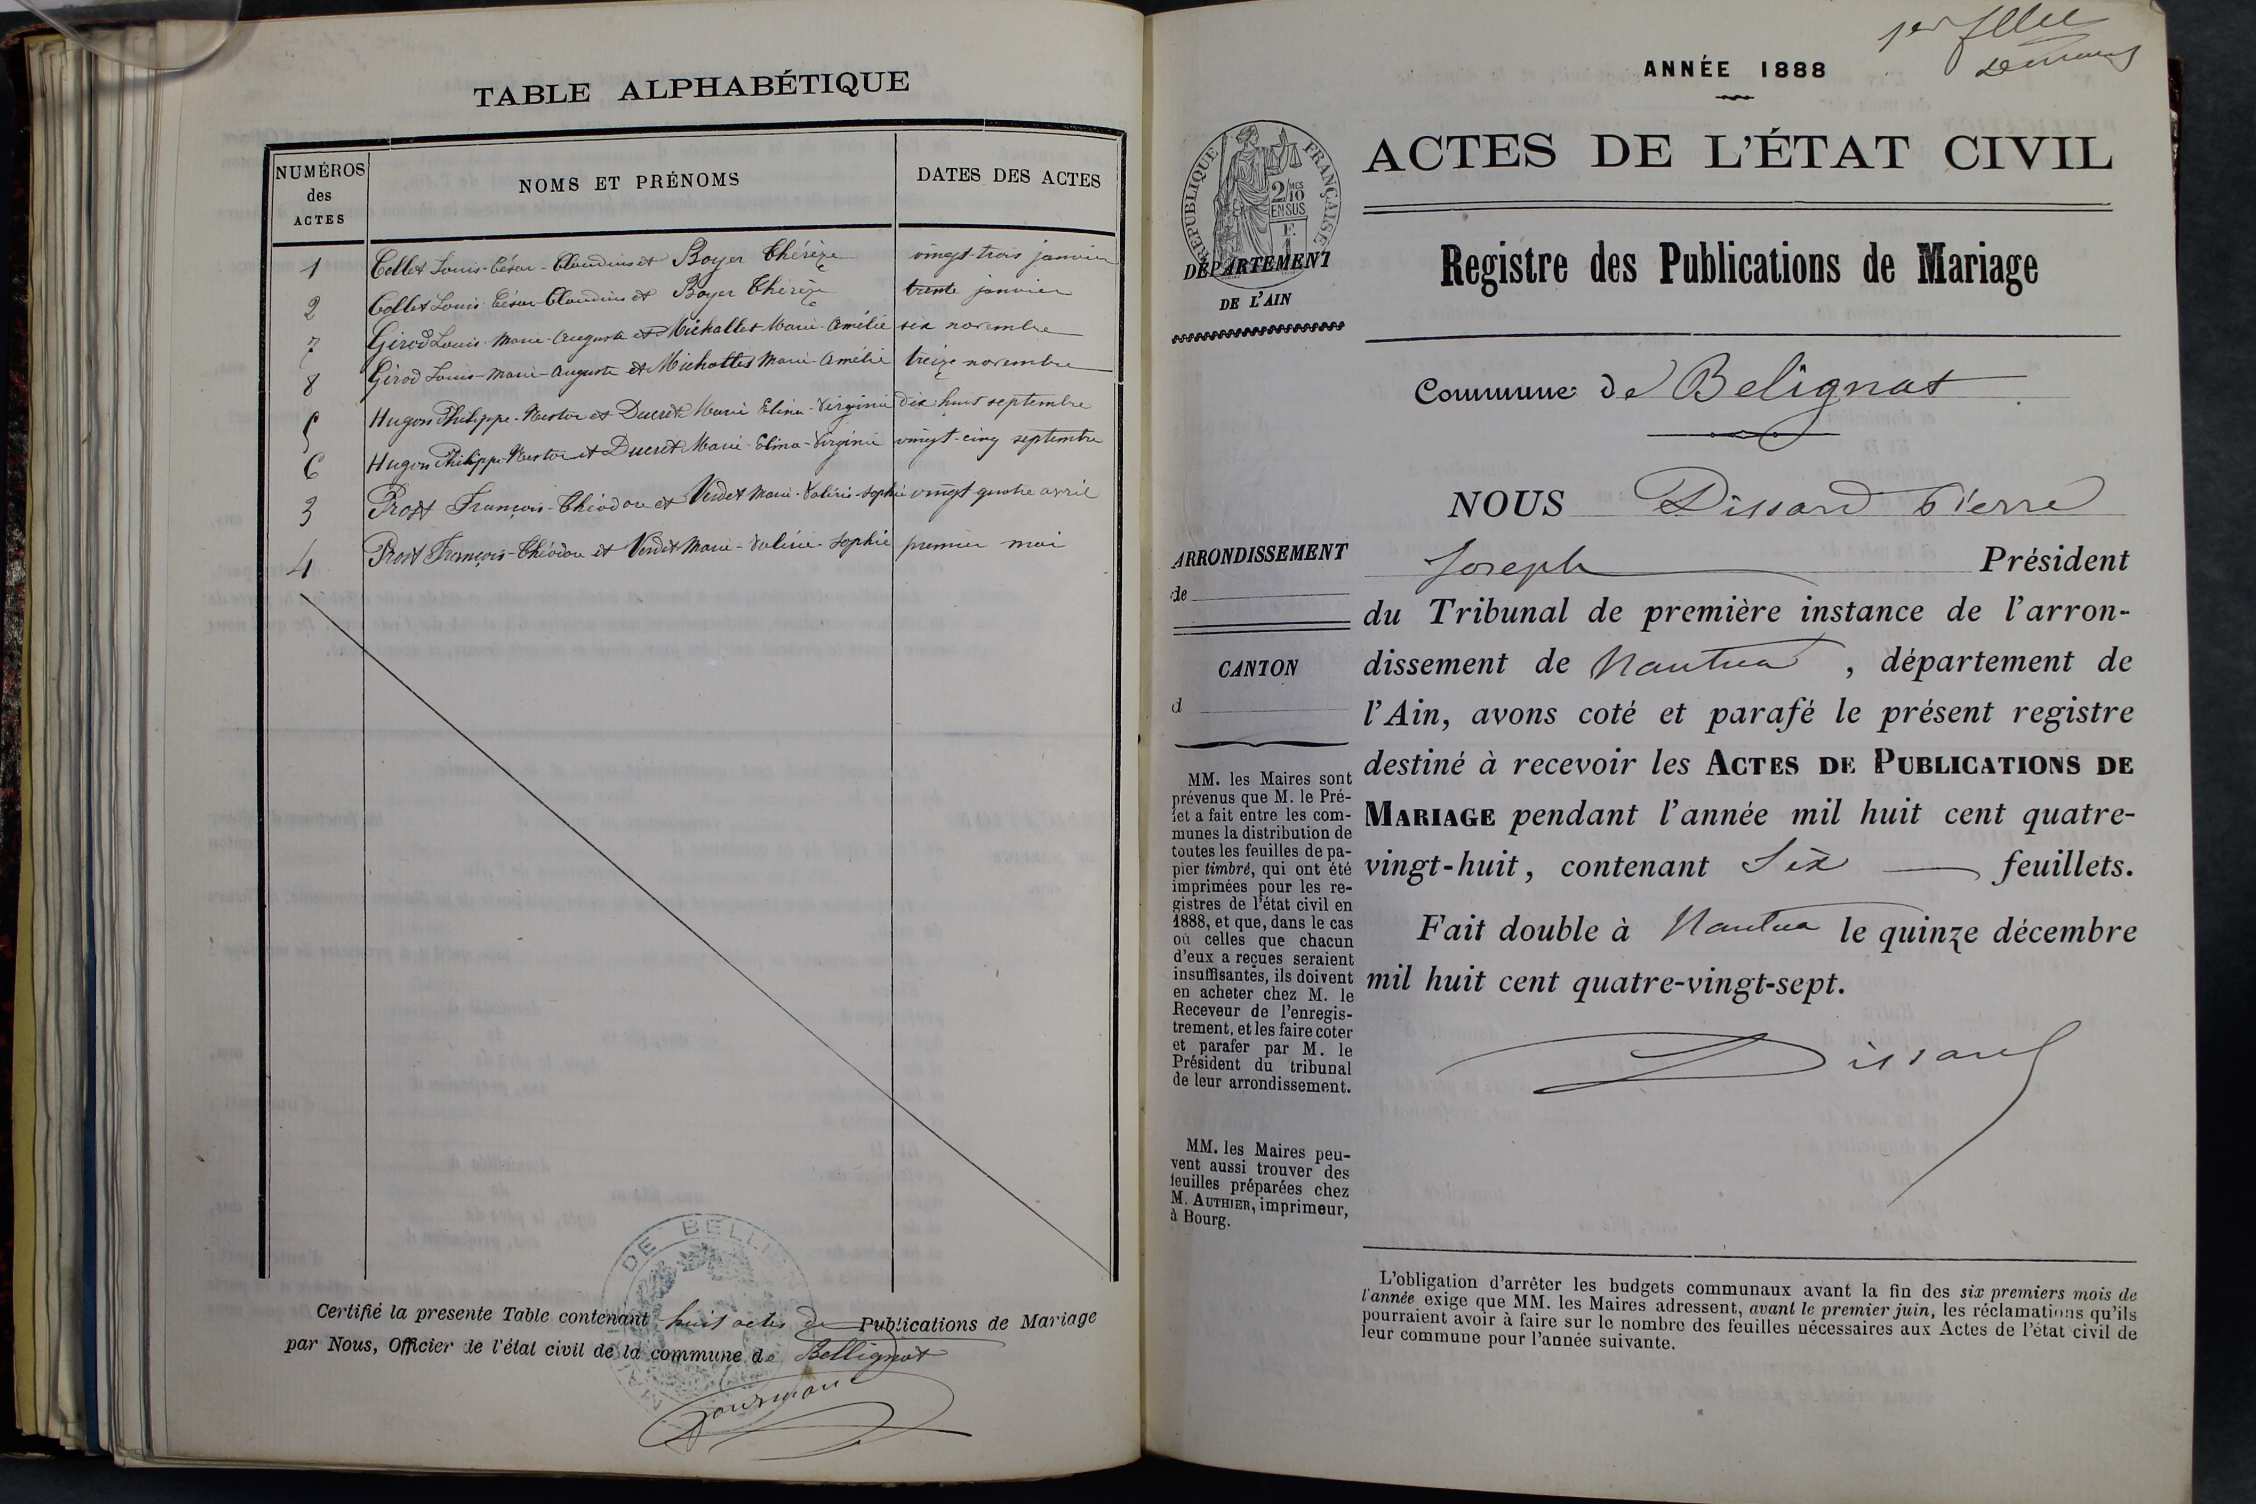 TABLE ALPHABÉTIQUE
NUMÉROS
des
ACTES
NOMS ET PRÉNOMS
DATES DES ACTES
1 Collet Louis-César-Claudius et Boyer Thérèze vingt-trois janvier
2 Collet Louis-César-Claudius et Boyer Thérèze trente janvier
7 Girod Louis-Marie-Auguste et Michallet Marie-Amélie six novembre
8 Girod Louis-Marie-Auguste et Michallet Marie-Amélie treize novembre
5 Hugon Philippe-Nestor et Ducret Marie Elina-Virginie dix huit septembre
6 Hugon Philippe-Nestor et Ducret Marie-Elina-Virginie vingt-cinq septembre
3 Prost François-Théodore et Verdet Marie-Valérie-Sophie vingt quatre avril
4 Prost François-Théodore et Verdet Marie-Valérie-Sophie premier mai
DE BELLIG
Certifié la presente Table contenant huit actes de Publications de Mariage
par Nous, Officier de l'état civil de la commune de Bellignat
ANNÉE 1888
ACTES DE L'ÉTAT CIVIL
RÉPUBLIQUE FRANÇAISE
2/10
EN SUS
DÉPARTEMENT
DE L'AIN
Registre des Publications de Mariage
Commune de Belignat
NOUS Dissard Pierre
Joseph Président
du Tribunal de première instance de l'arron-
dissement de Nantua, département de
l'Ain, avons coté et parafé le présent registre
destiné à recevoir les ACTES DE PUBLICATIONS DE
MARIAGE pendant l'année mil huit cent quatre-
vingt-huit, contenant Six feuillets.
Fait double à Nantua le quinze décembre
mil huit cent quatre-vingt-sept.
Dissard
ARRONDISSEMENT
de
CANTON
d
MM. les Maires sont
prévenus que M. le Pré-
fet a fait entre les com-
munes la distribution de
toutes les feuilles de pa-
pier timbré, qui ont été
imprimées pour les re-
gistres de l'état civil en
1888, et que, dans le cas
où celles que chacun
d'eux a reçues seraient
insuffisantes, ils doivent
en acheter chez M. le
Receveur de l'enregis-
trement, et les faire coter
et parafer par M. le
Président du tribunal
de leur arrondissement.
MM. les Maires peu-
vent aussi trouver des
feuilles préparées chez
M. AUTHIER, imprimeur,
à Bourg.
L'obligation d'arrêter les budgets communaux avant la fin des six premiers mois de
l'année exige que MM. les Maires adressent, avant le premier juin, les réclamations qu'ils
pourraient avoir à faire sur le nombre des feuilles nécessaires aux Actes de l'état civil de
leur commune pour l'année suivante.